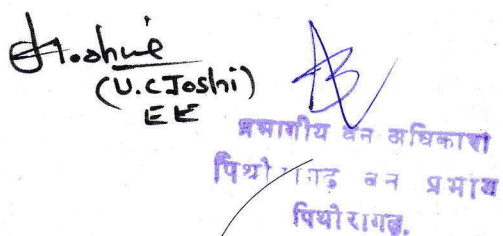 (U.C Joshi)
EE
प्रभागीय वन अधिकारी
पिथौरागढ़ वन प्रभाग
पिथौरागढ़.